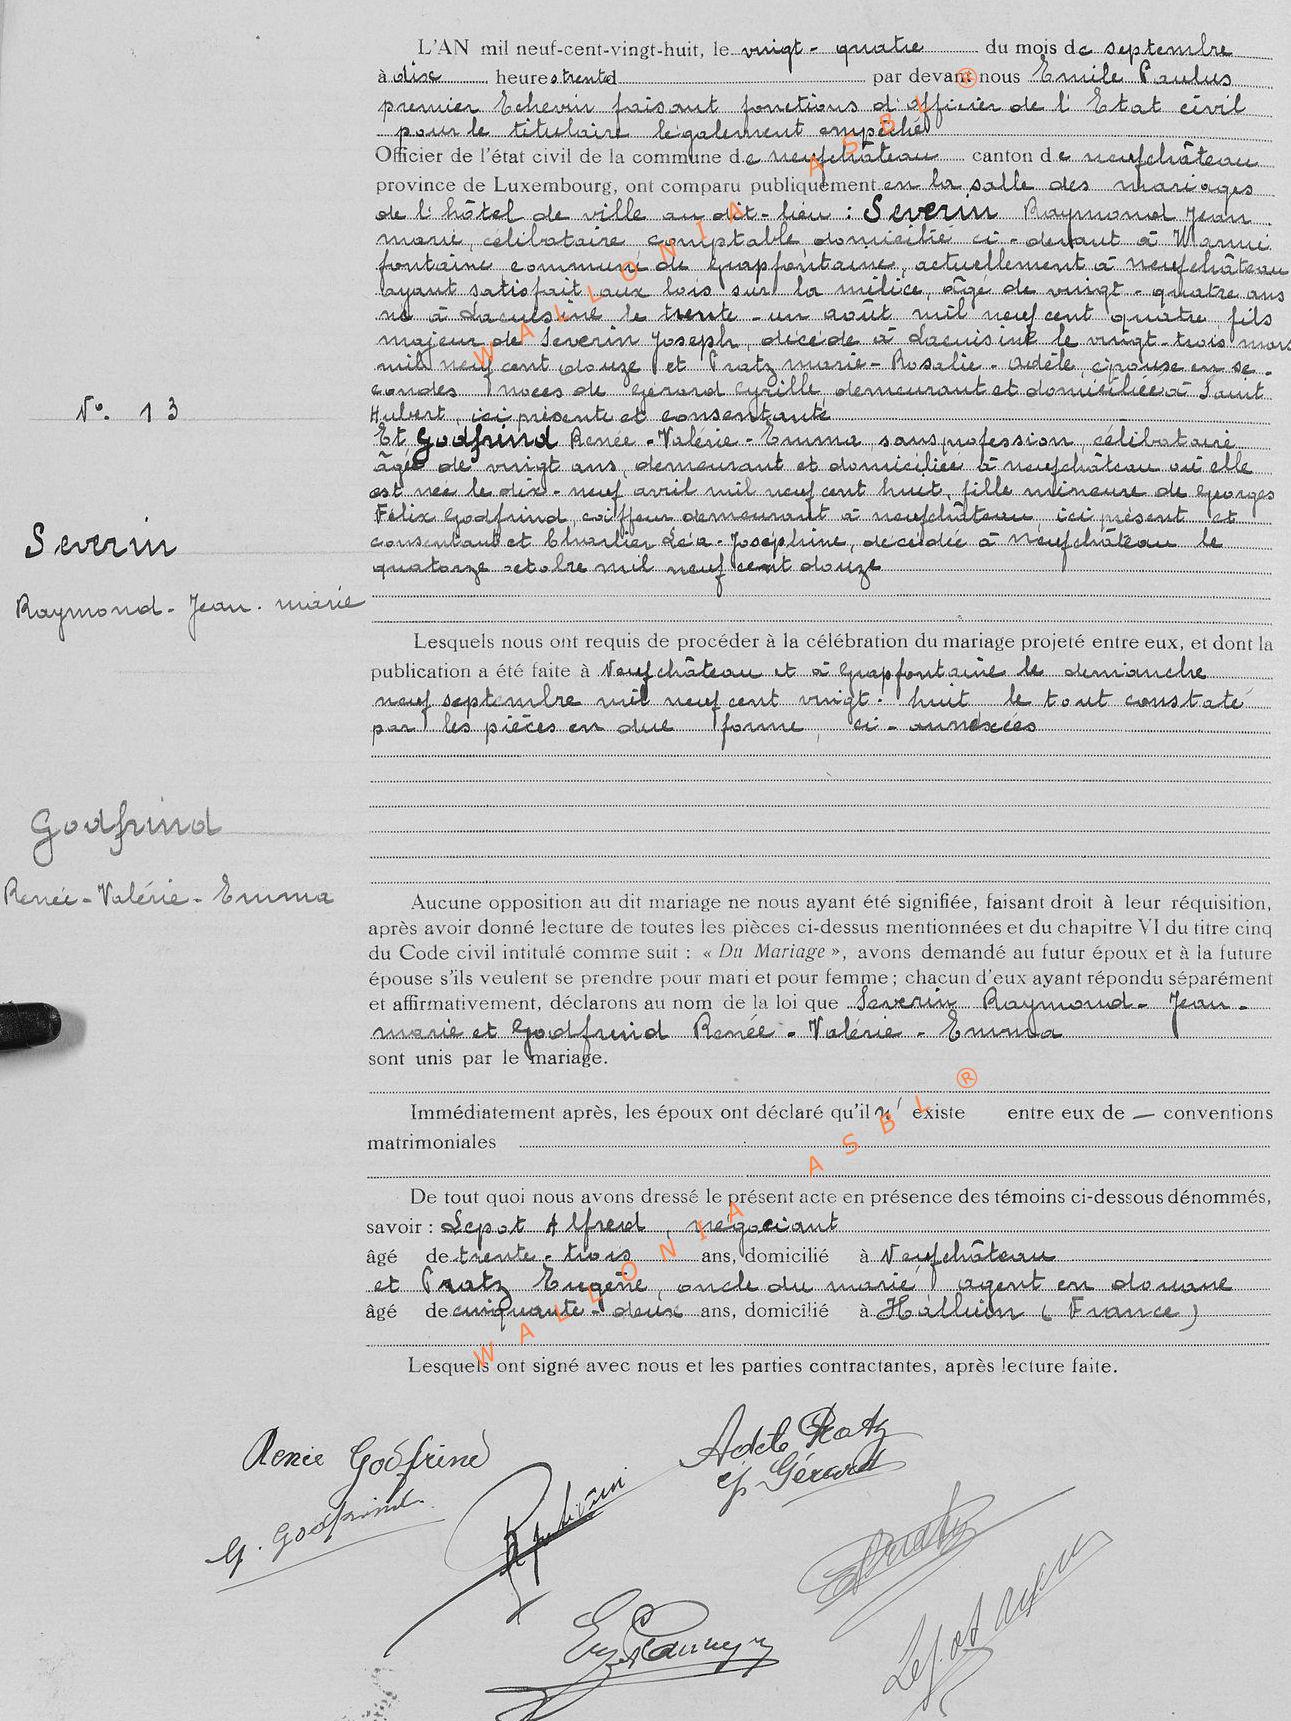 L'AN mil neuf-cent-vingt-huit, le vingt-quatre du mois de septembre
à dix heures trente par devant nous Emile Paulus
premier Echevin faisant fonctions d'officier de l'Etat civil
pour le titulaire légalement empêché
Officier de l'état civil de la commune de neufchâteau canton de neufchâteau
province de Luxembourg, ont comparu publiquement en la salle des mariages
de l'hôtel de ville au dit-lieu : Severin Raymond Jean
marie, célibataire comptable, domicilié ci-devant à Warmi
fontaine commune de Grapfontaine, actuellement à neufchâteau
ayant satisfait aux lois sur la milice, âgé de vingt-quatre ans
né à Lacuisine le trente-un août mil neuf cent quatre fils
majeur de Severin Joseph, décédé à Lacuisine le vingt-trois mars
mil neuf cent douze et Pratz marie-Rosalie-adèle, épouse en se-
condes noces de Gérard Cyrille, demeurant et domiciliée à Saint
Hubert, ici présente et consentante
N° 13
Et Godfrind Renée-Valérie-Emma, sans profession, célibataire
âgée de vingt ans, demeurant et domiciliée à neufchâteau où elle
est née le dix-neuf avril mil neuf cent huit, fille mineure de Georges
Félix Godfrind, coiffeur demeurant à neufchâteau, ici présent et
consentant et Charlier Léa-Joséphine, décédée à Neufchâteau le
quatorze octobre mil neuf cent douze
Severin
Raymond-Jean-marie
Lesquels nous ont requis de procéder à la célébration du mariage projeté entre eux, et dont la
publication a été faite à Neufchâteau et à Grapfontaine le dimanche
neuf septembre mil neuf cent vingt-huit le tout constaté
par les pièces en due forme, ci-annexées
Godfrind
Renée-Valérie-Emma
Aucune opposition au dit mariage ne nous ayant été signifiée, faisant droit à leur réquisition,
après avoir donné lecture de toutes les pièces ci-dessus mentionnées et du chapitre VI du titre cinq
du Code civil intitulé comme suit : « Du Mariage », avons demandé au futur époux et à la future
épouse s'ils veulent se prendre pour mari et pour femme ; chacun d'eux ayant répondu séparément
et affirmativement, déclarons au nom de la loi que Severin Raymond-Jean-
marie et Godfrind Renée-Valérie-Emma
sont unis par le mariage.
Immédiatement après, les époux ont déclaré qu'il n'existe entre eux de — conventions
matrimoniales
De tout quoi nous avons dressé le présent acte en présence des témoins ci-dessous dénommés,
savoir : Lepot Alfred, négociant
âgé de trente-trois ans, domicilié à Neufchâteau
et Pratz Eugène, oncle du marié, agent en douane
âgé de cinquante-deux ans, domicilié à Halluin (France)
Lesquels ont signé avec nous et les parties contractantes, après lecture faite.
Renée Godfrind
Adèle Pratz
ép. Gérard
G. Godfrind
WALLONIA ASBL ®
WALLONIA ASBL ®